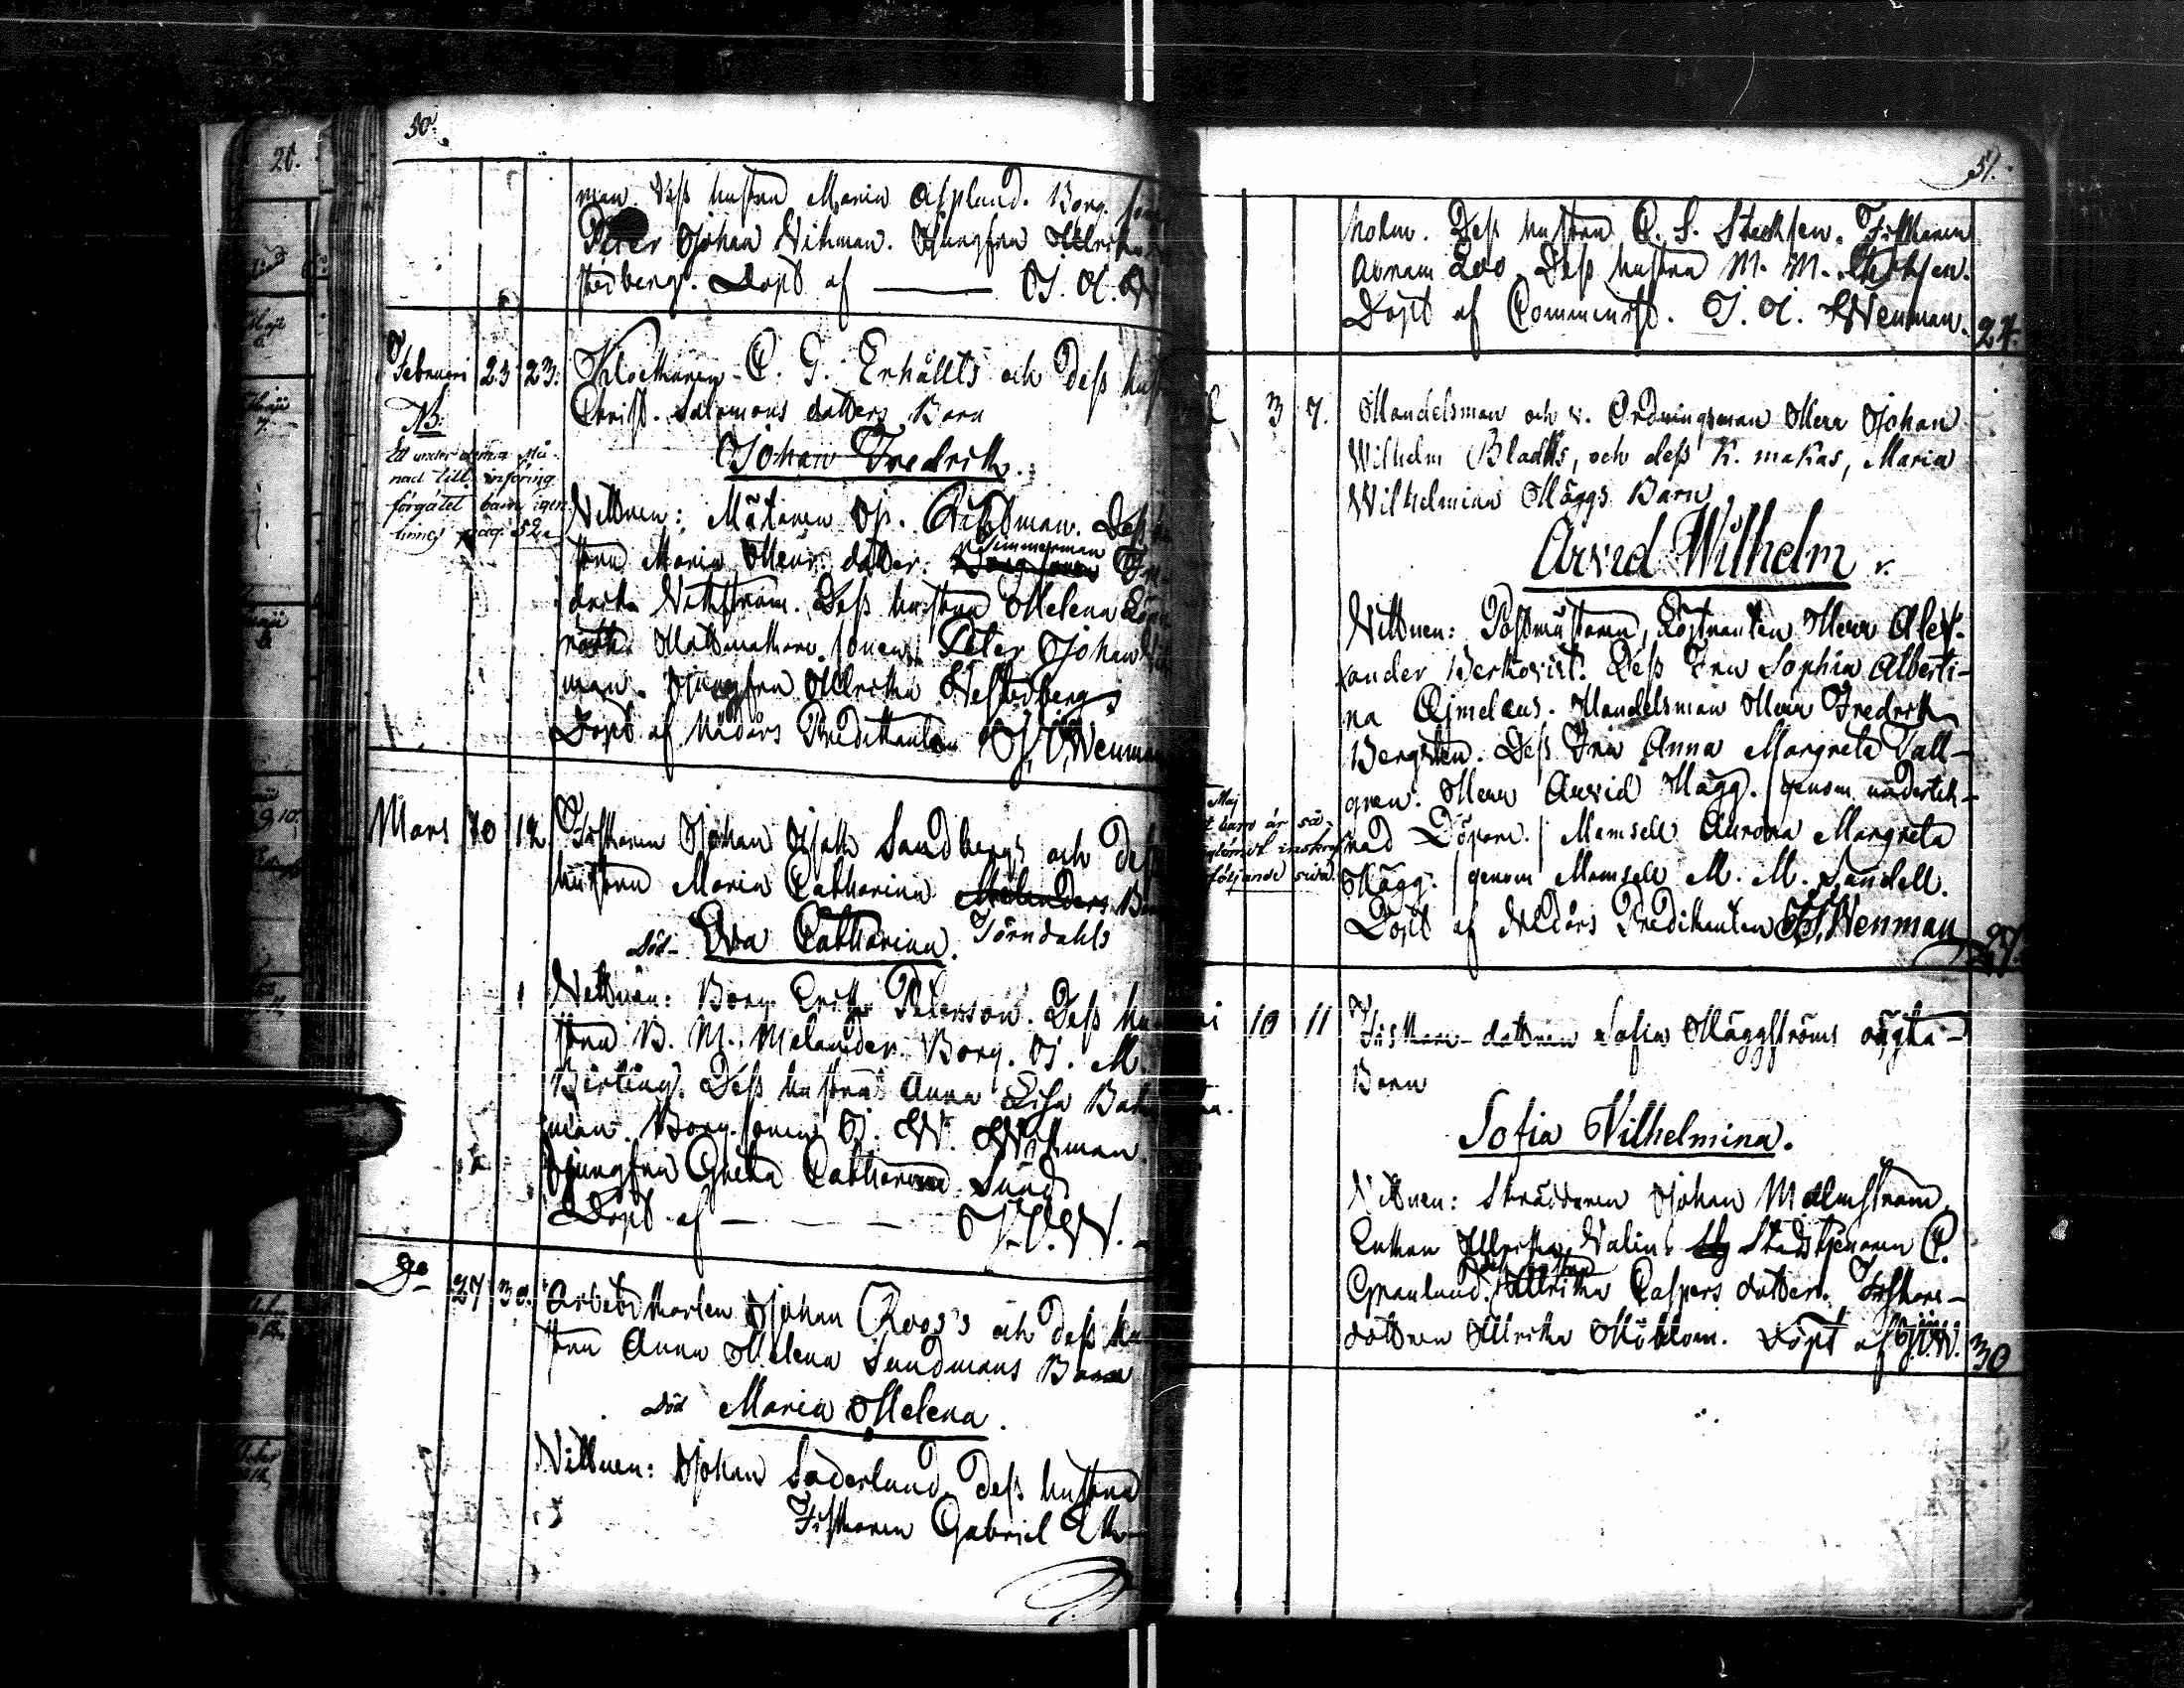 50.
man. Deß hustru Maria Asplund. Borg. son
Peter Johan Wikman. Jungfru Ulrika
stedberg. Döpt af — J. U. W
Februari 23 23. Klockaren C. G. Enhälls och Deß hust
Christ. Salomons dotters Barn
Johan Fredrik.
NB.
Ett under denna må-
nad till införing
förgätet barn igen
finnes pag. 52.
Vittnen: Mätaren Deß hu
stru Maria Henr. dotter. Timmerman Fre
drik Vikström. Deß hustru Helena
Peter Johan Wik
man. Jungfru Ulrika Westedberg
Döpt af Nådårs Predikanten J. U. Wenman
Mars 10 12. Fiskaren Johan Jsak Sandbergs och Deß
hustru Maria Catharina Melanders Barn
Törndahls
Död- Eva Catharina.
Vittnen: Borg. Erik Peterson. Deß hu
stru B. M. Melander. Borg. J. M.
Birling. Deß hustru Anna Lisa Bak
man. Borg. sonen J. W. Wikman
Jungfru Greta Catharina Sund
Döpt af — — — J. U. W.
Do 27 30. Arbets Karlen Johan Roos's och deß hu
stru Anna Helena Sundmans Barn
Död Maria Helena.
Vittnen: Johan Söderlund. Deß hustru
Fiskaren Gabriel Ek
51.
holm. Deß hustru C. S. Stecksen. Fiskaren
Abram Loo. Deß hustru M. M. Steksen.
Döpt af Comminist. J. U. Wenman. 27.
3 7. Handelsman och v. Ordningsman Herr Johan
Wilhelm Bladhs, och deß K. makas, Maria
Wilhelmina Häggs Barn
Arvid Wilhelm
Vittnen: Postmästaren, Löjtnanten Herr Alex-
ander Berkovist. Deß Fru Sophia Alberti-
na Ajmelæus. Handelsman Herr Fredrik
Bergsten. Deß Fru Anna Margreta Tall-
gren. Herr Arvid Hägg. / genom underteck-
nad Döpare. / Mamsell Aurora Margreta
Hägg. / genom Mamsell M. M. Sundell.
Döpt af Nådårs Predikanten J. U. Wenman
Maj
t barn är så-
glömdt inskrif
följande sida.
10 11 Fiskare-dottren Sofia Häggströms oägta-
Barn
Sofia Vilhelmina.
Vittnen: Skräddaren Johan Malmström,
Enkan Ulrika Valin. Stadstjenaren C.
Granlund. Deß hustru Ulrika Caspers dotter. Fiskare-
dottren Ulrika Döpt af J. U. W. 30